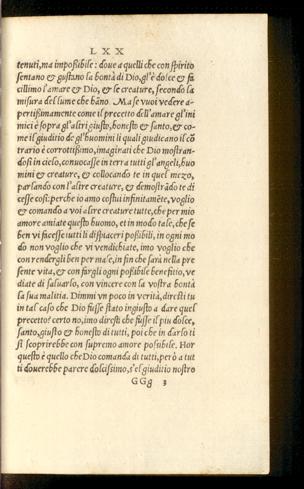 LXX
tenuti, ma impoßibile: doue a quelli che con spirito
sentano & gustano la bontà di Dio, gl'è dolce & fa
cillimo l'amare & Dio, & le creature, secondo la
misura del lume che hāno. Ma se vuoi vedere a-
pertißimamente come il precetto dell'amare gl'ini
mici è sopra gl'altri giusto, honesto & santo, & co-
me il giuditio de gl'huomini li quali giudicano il cō
trario è corrottißimo, imaginati che Dio mostran-
dosi in cielo, conuocasse in terra tutti gl'angeli, huo
mini & creature, & collocando te in quel mezo,
parlando con l'altre creature, & demostrādo te di
cesse cosi: perche io amo costui infinitamēte, voglio
& comando a voi altre creature tutte, che per mio
amore amiate questo huomo, et in modo tale, che se
ben vi facesse tutti li dispiaceri poßibili, in ogni mo
do non voglio che vi vendichiate, imo voglio che
con rendergli ben per male, in fin che sarà nella pre
sente vita, & con fargli ogni poßibile benefitio, ve
diate di saluarlo, con vincere con la vostra bontà
la sua malitia. Dimmi vn poco in verità, diresti tu
in tal caso che Dio fusse stato ingiusto a dare quel
precetto? certo no, imo diresti che fusse il piu dolce,
santo, giusto & honesto di tutti, poi che in darlo ti
si scoprirebbe con supremo amore poßibile. Hor
questo è quello che Dio comanda di tutti, però a tut
ti douerebbe parere dolcissimo, s'el giuditio nostro
GGg 3